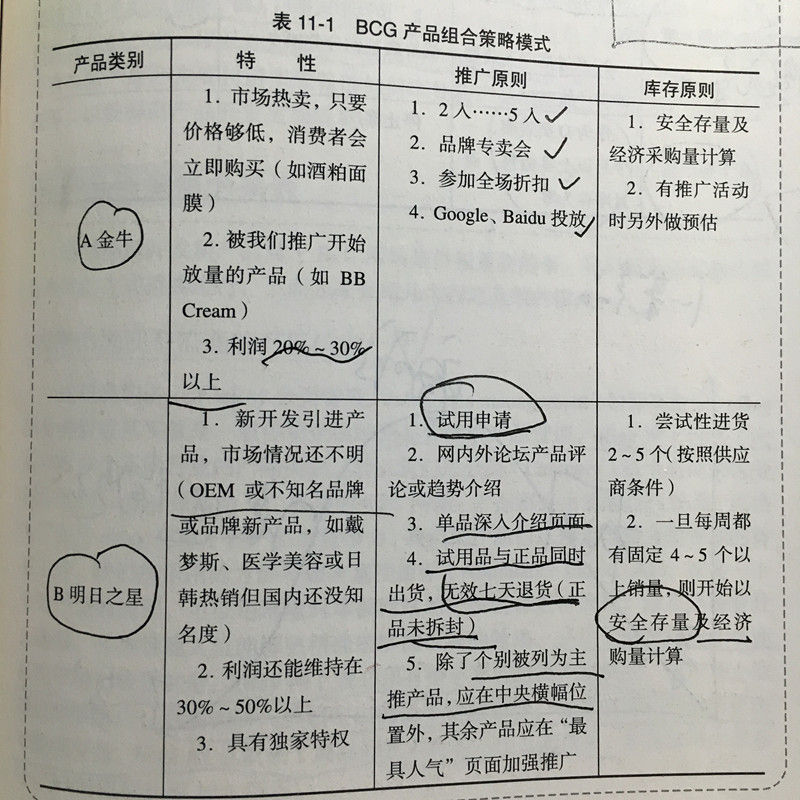 表 11-1 BCG 产品组合策略模式
产品类别 特 性 推广原则 库存原则
A 金牛
1. 市场热卖，只要
价格够低，消费者会
立即购买（如酒粕面
膜）
2. 被我们推广开始
放量的产品（如 BB
Cream）
3. 利润 20% ~ 30%
以上
1. 2 人……5 人
2. 品牌专卖会
3. 参加全场折扣
4. Google、Baidu 投放
1. 安全存量及
经济采购量计算
2. 有推广活动
时另外做预估
B 明日之星
1. 新开发引进产
品，市场情况还不明
（OEM 或不知名品牌
或品牌新产品，如戴
梦斯、医学美容或日
韩热销但国内还没知
名度）
2. 利润还能维持在
30% ~ 50%以上
3. 具有独家特权
1. 试用申请
2. 网内外论坛产品评
论或趋势介绍
3. 单品深入介绍页面
4. 试用品与正品同时
出货，无效七天退货（正
品未拆封）
5. 除了个别被列为主
推产品，应在中央横幅位
置外，其余产品应在“最
具人气”页面加强推广
1. 尝试性进货
2~5 个（按照供应
商条件）
2. 一旦每周都
有固定 4~5 个以
上销量，则开始以
安全存量及经济
购量计算